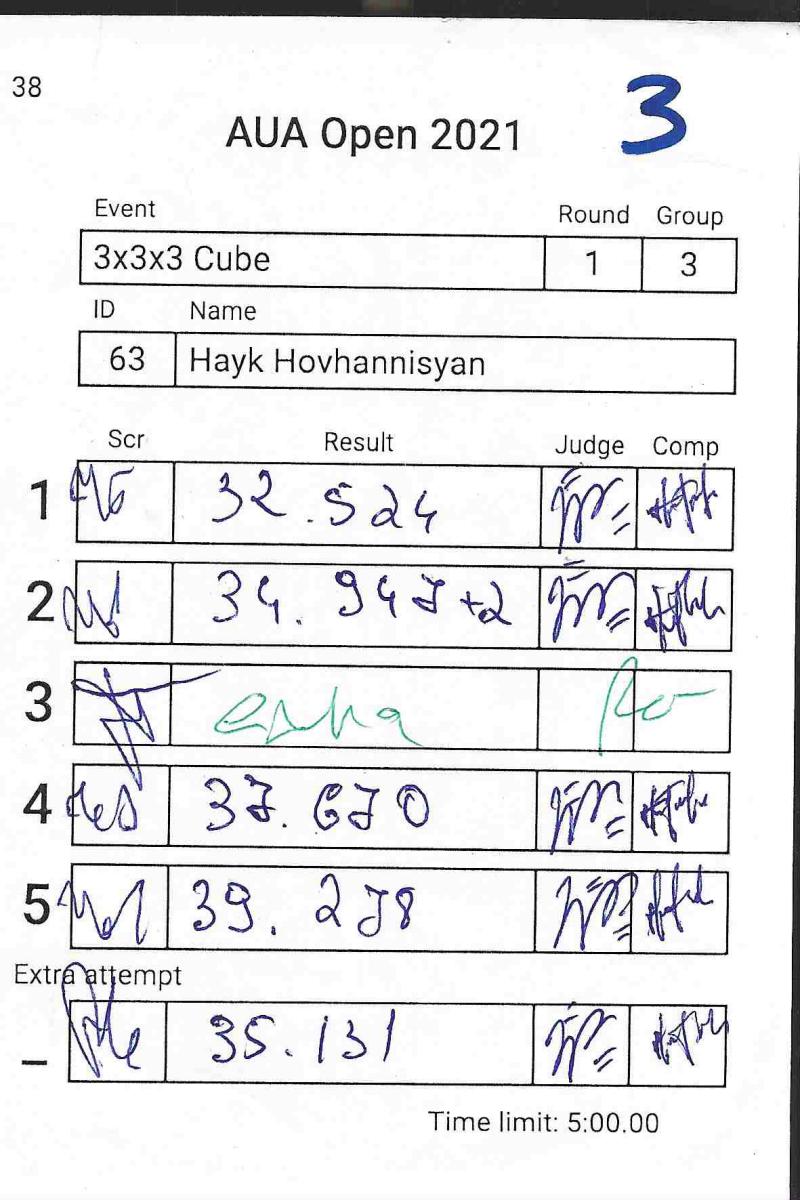 38
3
AUA Open 2021
Event Round Group
3x3x3 Cube 1 3
ID Name
63 Hayk Hovhannisyan
Scr Result Judge Comp
1 32.524
2 34.947+2
3 extra
4 37.670
5 39.278
Extra attempt
_ 35.131
Time limit: 5:00.00